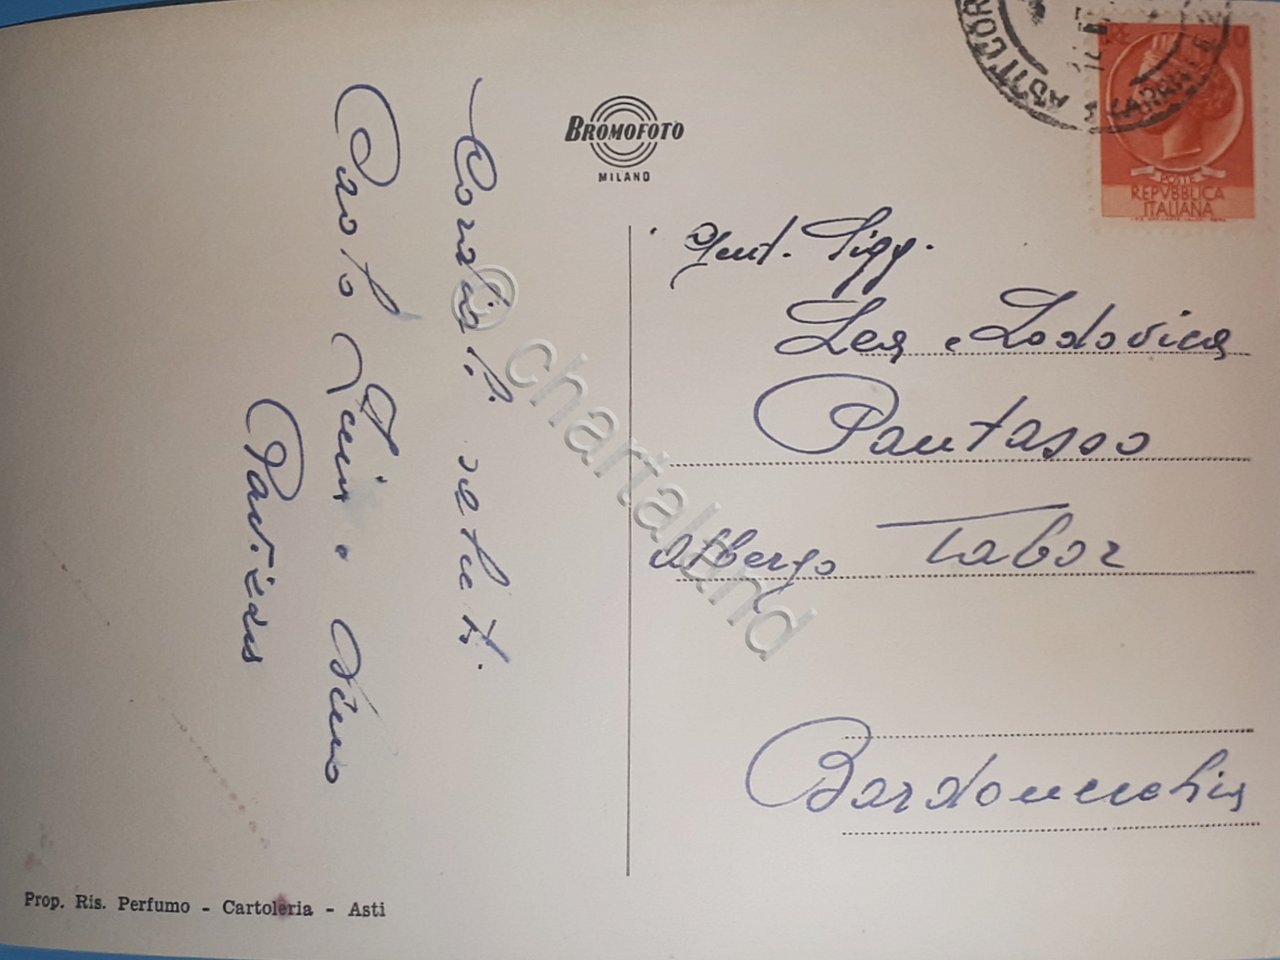 BROMOFOTO
MILANO
ASTI CORR
POSTE
REPVBBLICA
ITALIANA
Cordiali saluti.
Carlo
Gent. Sigg.
Lea e Lodovica
Pantasso
Albergo Tabor
Bardonecchia
Prop. Ris. Perfumo - Cartoleria - Asti
© chartaland